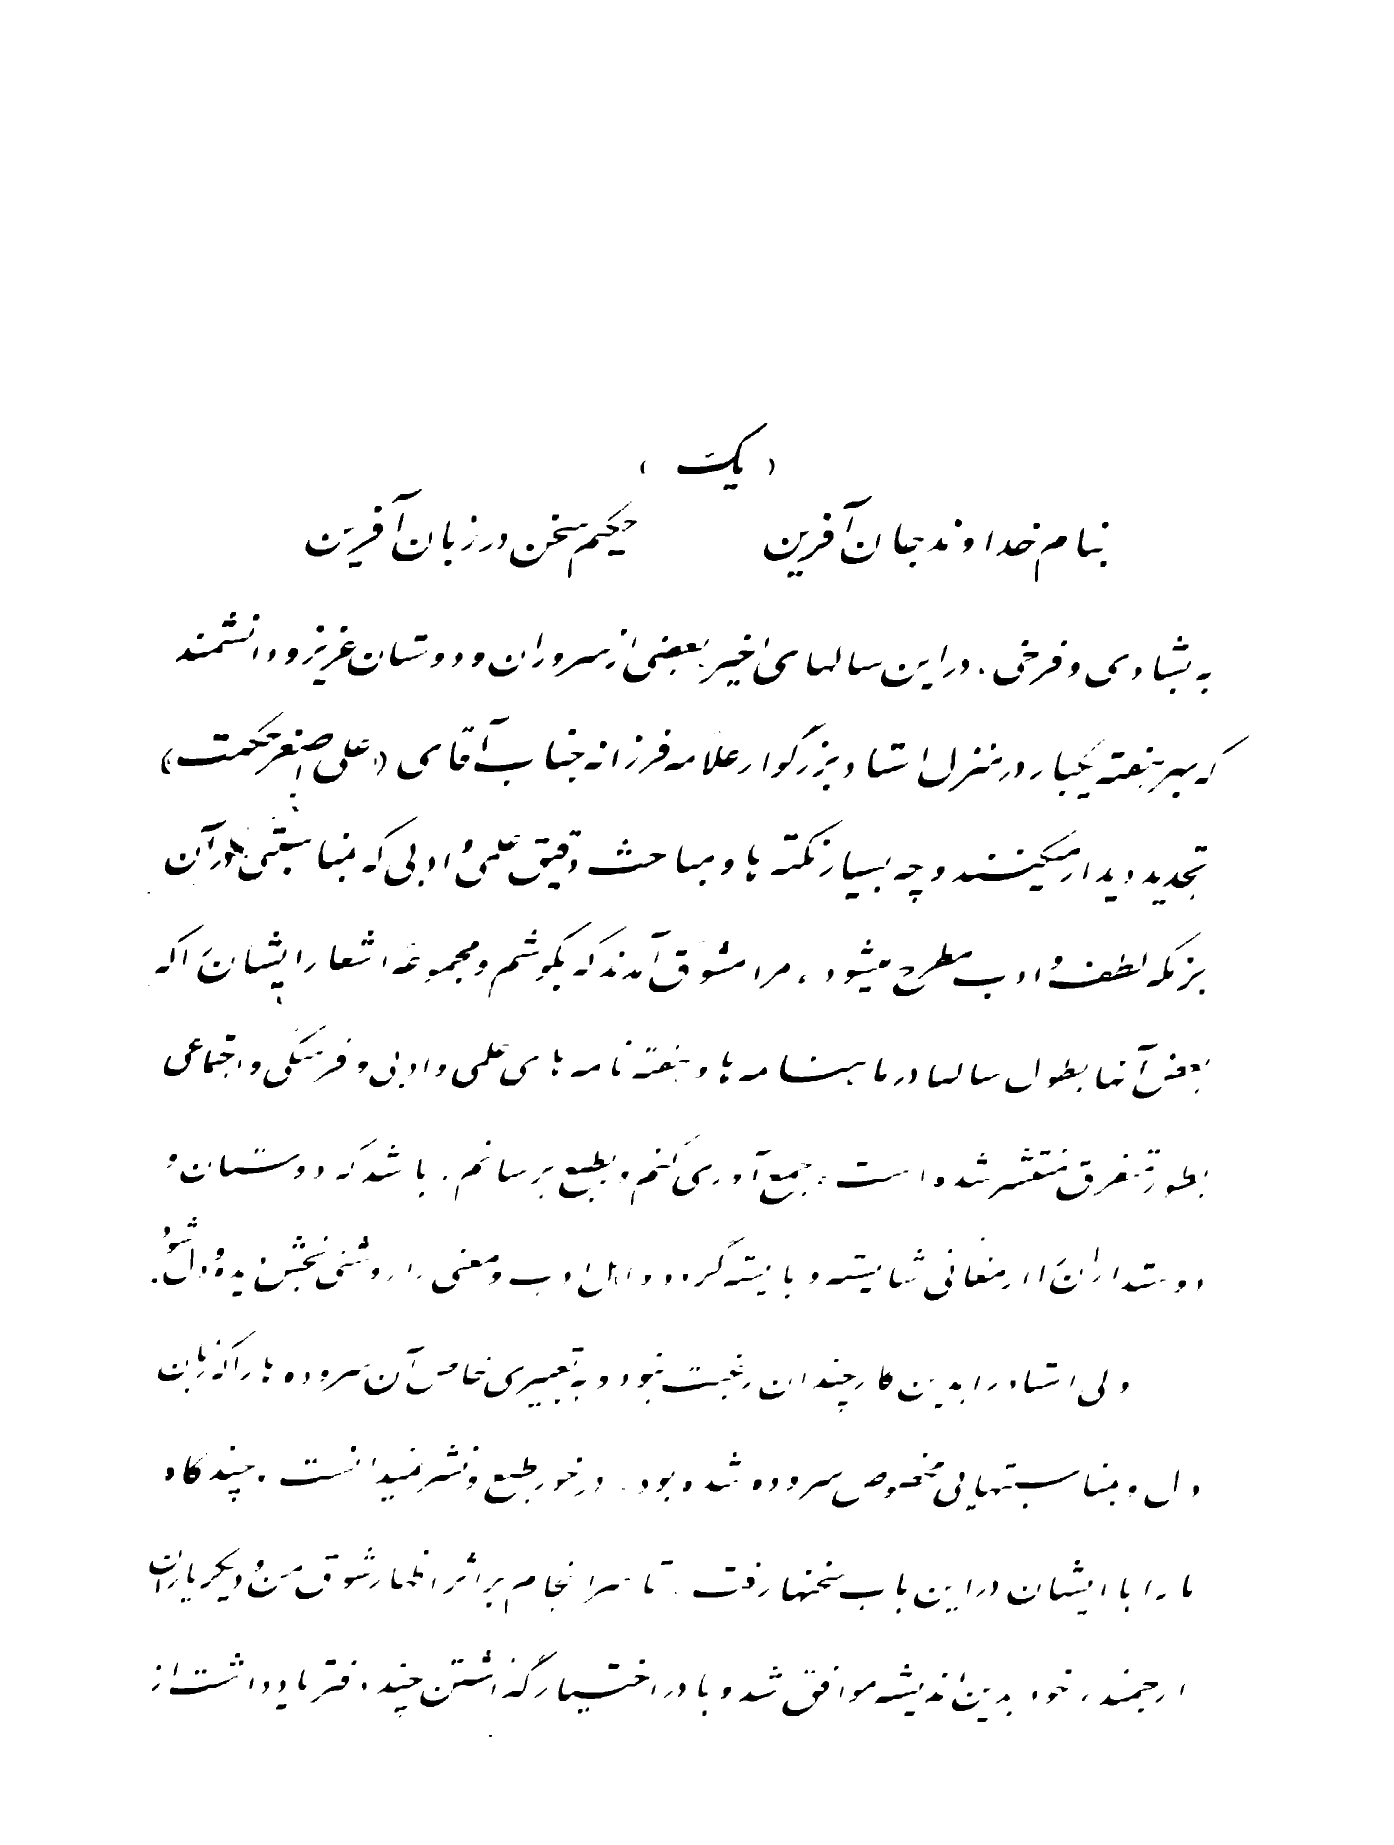 ( یک )
بنام خداوند جان آفرین حکیم سخن در زبان آفرین
به شادی و فرخی . در این سالهای اخیر بعضی از سروران و دوستان عزیز و دانشمند
که هر هفته یکبار در منزل استاد بزرگوار علامه فرزانه جناب آقای (علی اصغر حکمت)
تجدید دیدار میکنند و چه بسیار نکته ها و مباحث دقیق علمی و ادبی که بمناسبتی در آن
بزمگه لطف و ادب مطرح میشود ، مرا مشوق آمدند که بکوشم و مجموعه اشعار ایشان را که
بعض آنها بطول سالها در ماهنامه ها و هفته نامه های علمی و ادبی و فرهنگی و اجتماعی
بطور متفرق منتشر شده است ، جمع آوری کنم و بطبع برسانم . باشد که دوستان و
دوستداران را ارمغانی شایسته و بایسته گردد و اهل ادب و معنی را روشنی بخش دیده و دل شود .
ولی استاد را بدین کار چندان رغبت نبود و به تعبیری خاص آن سروده ها را که زبان
دل و بمناسبتهایی مخصوص سروده شده بود . در خور طبع و نشر نمیدانست . چند گاه
ما را با ایشان در این باب سخنها رفت . تا سرانجام بر اثر اظهار شوق من و دیگر یاران
ارجمند ، خود بدین اندیشه موافق شد و با در اختیار گذاشتن چند دفتر یادداشت از